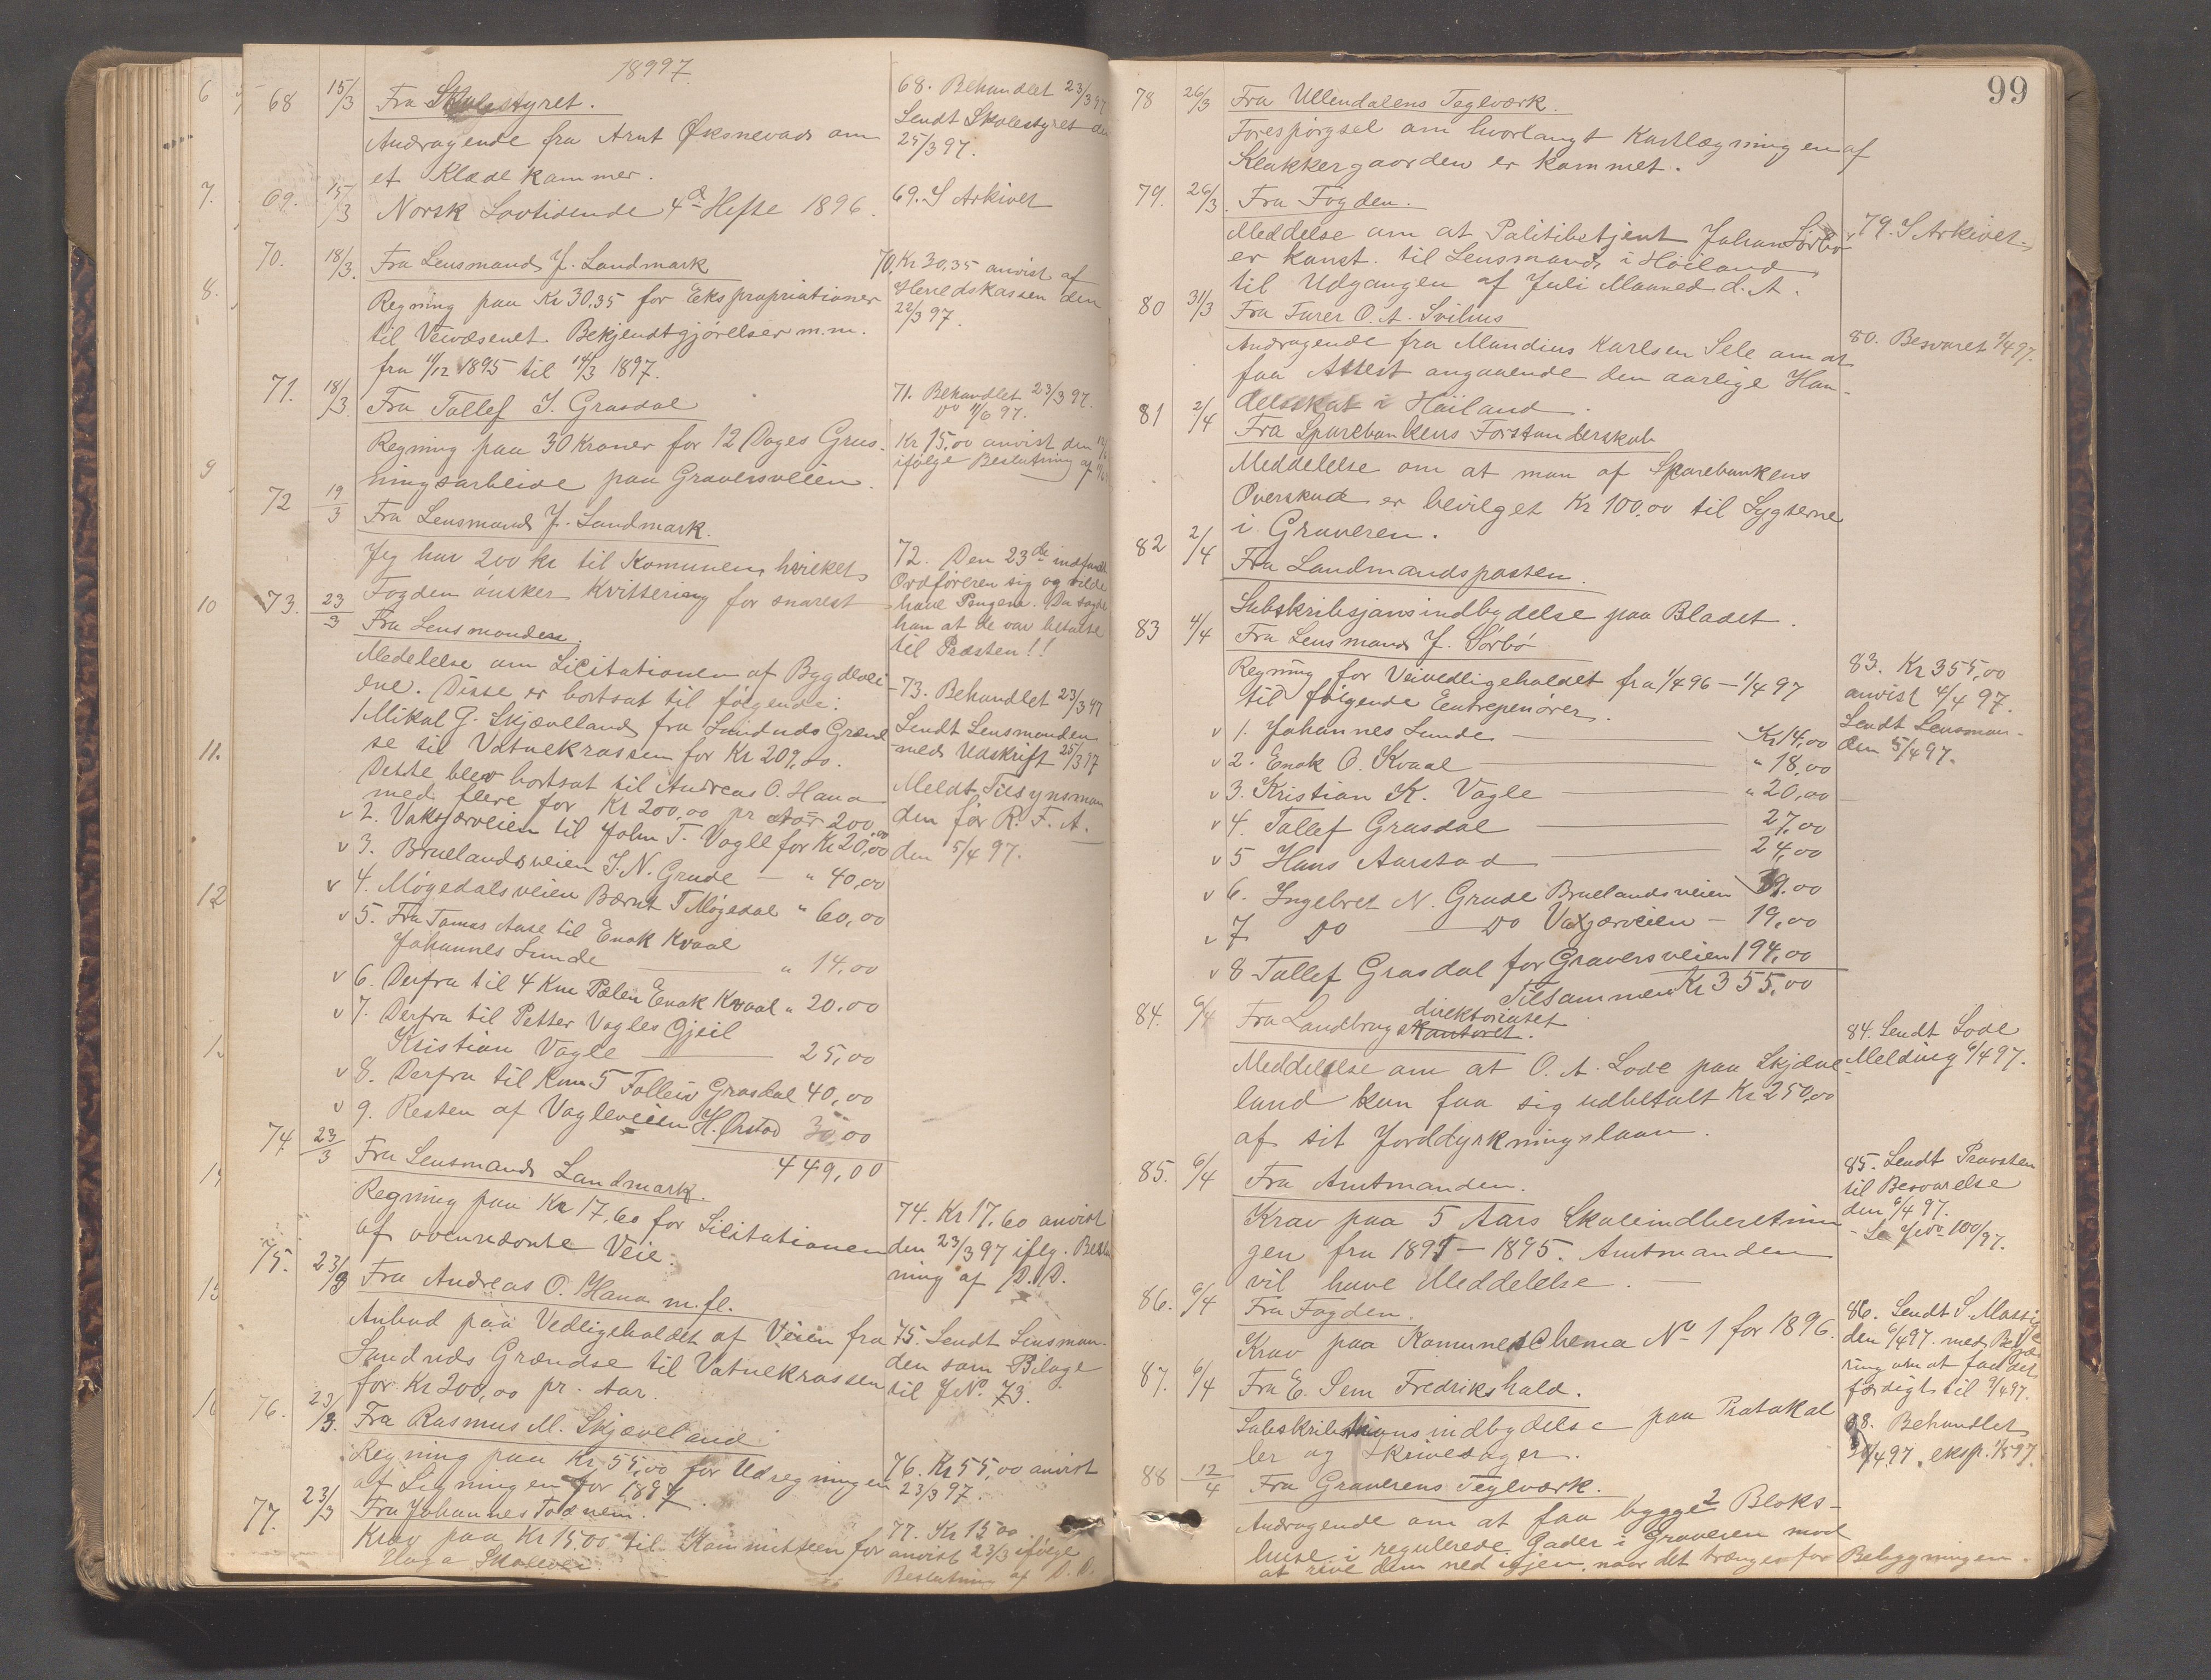 18997.
68 15/3 Fra Skolestyret.
Andragende fra Arnt Øksnevads om
et Klædekammer.
68. Behandlet 23/3 97
Sendt Skolestyret den
25/3 97.
69. 15/3 Norsk Lovtidende 4de Hefte 1896.
69. I Arkivet
70. 18/3. Fra Lensmand J. Landmark
Regning paa Kr 30,35 for Ekspropriationer
til Veivæsenet Bekjendtgjørelser m.m.
fra 11/12 1895 til 14/3 1897.
70. Kr 30,35 anvist af
Herredskassen den
22/3 97.
71. 18/3. Fra Tollef I. Grasdal
Regning paa 30 Kroner for 12 Dages Grus-
ningsarbeide paa Graversveien.
71. Behandlet 23/3 97.
Do 11/6 97.
Kr 15,00 anvist den
ifølge Beslutning af
72 19/3 Fra Lensmand J. Landmark.
Jeg har 200 kr til Komunen, hvilket
Fogden ønsker Kvittering for snarest
72. Den 23de indfandt
Ordføreren sig og vilde
have Pengene. Da sagde
han at de var betalte
til Præsten!!
73. 23/3 Fra Lensmanden.
Medelelse om Licitationen af Bygdevei
ene. Disse er bortsat til følgende:
1. Mikal G. Skjævelland fra Sandnds Grænd
se til Vatnekrossen for Kr 209,00.
Dette blev bortsat til Andreas O. Hana
med flere for Kr 200,00 pr Aar 200,00
v 2. Vaksjærveien til John T. Vagle for Kr 20,00
v 3. Bruelandsveien I. N. Grude — " 40,00
v 4. Møgedalsveien Bernt T Møgedal " 60,00
v 5. Fra Tomas Aase til Enok Kvaal
Johannes Lunde — " 14,00
v 6. Derfra til 4 Km Pælen Enok Kvaal " 20,00
v 7. Derfra til Petter Vagles Gjeil
Kristian Vagle — 25,00
v 8. Derfra til Km 5 Tolleiv Grasdal 40,00
v 9. Resten af Vagleveien H. Ørstad 30,00
449,00
73. Behandlet 23/3 97
Sendt Lensmanden
med Udskrift 25/3 97
Meldt Tilsynsman
den for R. F. A.
den 5/4 97.
74 23/3 Fra Lensmand Landmark.
Regning paa Kr 17,60 for Licitationen
af ovennævnte Veie.
74. Kr 17,60 anvist
den 23/3 97 iflg. Beslut
ning af D. D.
75. 23/3 Fra Andreas O. Hana m.fl.
Anbud paa Vedligeholdet af Veien fra
Sandnds Grændse til Vatnekrossen
for Kr 200,00 pr. Aar.
75. Sendt Lensman-
den som Bilage
til J No. 73.
76. 23/3. Fra Rasmus M. Skjæveland
Regning paa Kr 55,00 for Udregningen
af Ligningen for 1897.
76. Kr 55,00 anvist
23/3 97.
77. 23/3 Fra Johannes Todnem.
Krav paa Kr 15,00 til Kommitteen for
Hana Skolevei.
77. Kr 15,00
anvist 23/3 ifølge
Beslutning af D. D.
99
78 26/3 Fra Ullendalens Teglværk.
Forespørgsel om hvorlangt Kartlægningen af
Klakkergaarden er kommet.
79. 26/3. Fra Fogden.
Meddelse om at Politibetjent Johan Sørbø
er konst. til Lensmand i Høiland
til Udgangen af Juli Maaned d.A.
79. I Arkivet.
80 31/3 Fra Furer O. A. Svihus
Andragende fra Mandius Karlsen Sele om at
faa Attest angaaende den aarlige Han-
delsskat i Høiland.
80. Besvaret 1/4 97.
81 2/4 Fra Sparebankens Forstanderskab
Meddelelse om at man af Sparebankens
Overskud er bevilget Kr 100,00 til Lygterne
i Graveren.
82 2/4 Fra Landmandsposten.
Subskribsjonsindbydelse paa Bladet.
83 4/4 Fra Lensmand J. Sørbø
Regning for Veivedligeholdet fra 1/4 96 — 1/4 97
til følgende Eentrepenører.
v 1. Johannes Lunde — Kr 14,00
v 2. Enok O. Kvaal — " 18,00
v 3. Kristian K. Vagle — " 20,00
v 4. Tollef Grasdal — 27,00
v 5 Hans Aarstad — 24,00
v 6. Ingebret N. Grude Bruelandsveien 39,00
v 7 Do — Do Vaxjærveien — 19,00
v 8 Tollef Grasdal for Graversveien 194,00
Tilsammen Kr 355,00
83. Kr 355,00
anvist 4/4 97.
Sendt Lensman-
den 5/4 97.
84. 6/4 Fra Landbrugskontoret. direktoratet
Meddelelse om at O. A. Lode paa Skjæve-
land kan faa sig udbetalt Kr 250,00
af sit Jorddyrkningslaan.
84. Sendt Lode
Melding 6/4 97.
85. 6/4 Fra Amtmanden.
Krav paa 5 Aars Skoleindberetnin
gen fra 1891 — 1895. Amtmanden
vil have Meddelelse.
85. Sendt Provsten
til Besvarelse
den 6/4 97.
- Se J No 100/97.
86. 6/4 Fra Fogden.
Krav paa Komuneschema No 1 for 1896.
86. Sendt S. Massig
den 6/4 97. med Begjæ
ring om at faa det
færdigt til 9/4 97.
87. 6/4 Fra E. Sem Fredrikshald.
Subskribtionsindbydelse paa Protokol
ler og Skrivesager.
88 12/4 Fra Graverens Teglværk.
Andragende om at faa bygge 2 Bloks-
huse i regulerede Gader i Graveren mod
at rive dem ned igjen, naar det trænges for Bebyggningen.
88. Behandlet
30/4 97. eksp. 1/5 97.